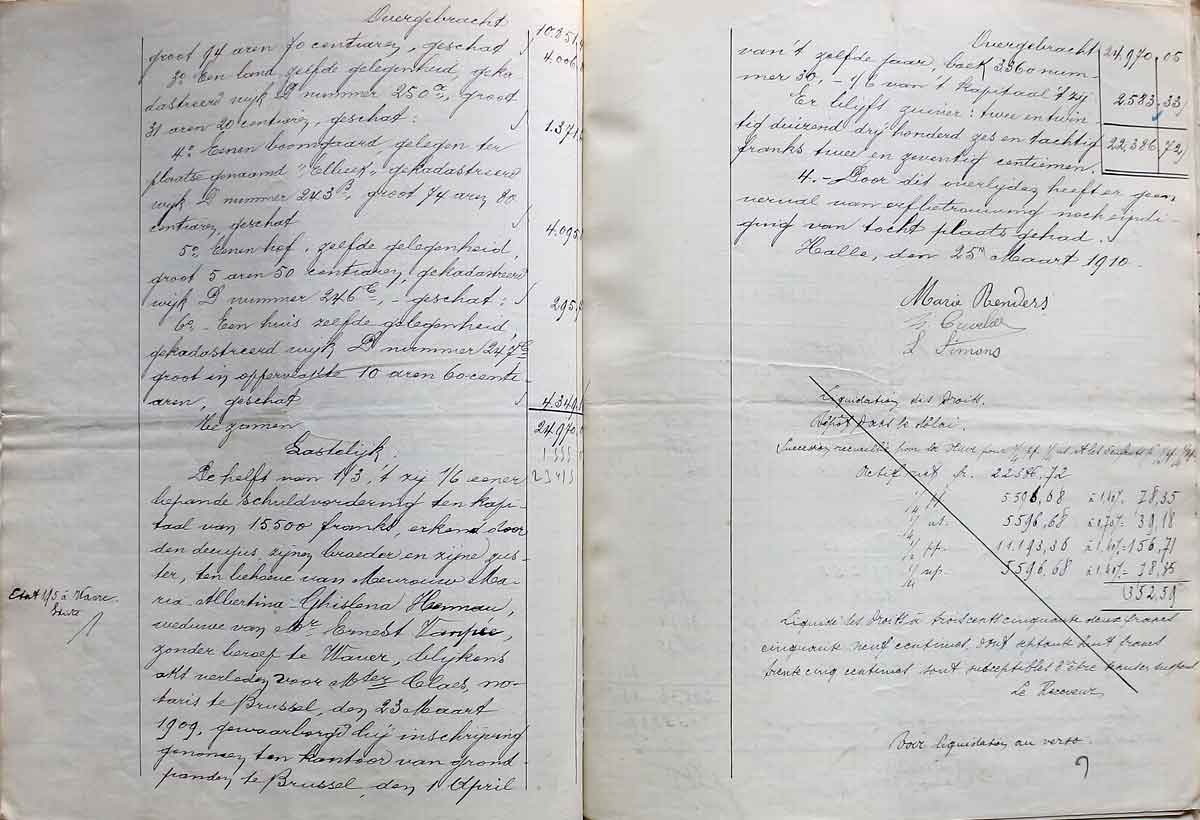 Overgebracht
groot 94 aren 70 centiaren, geschat
4.006,
3° Een land zelfde gelegenheid, geka-
dastreerd wijk D nummer 250a, groot
31 aren 20 centiaren, geschat:
1.371,
4° Eenen boomgaard gelegen ter
plaatse genaamd gekadastreerd
wijk D nummer 243 groot 74 aren 80
centiaren, geschat
4.095,
5° Eenen hof, zelfde gelegenheid,
groot 5 aren 50 centiaren, gekadastreerd
wijk D nummer 246c, - geschat:
295,
6° - Een huis zelfde gelegenheid,
gekadastreerd wijk D nummer 247
groot in oppervlakte 10 aren 60 centi-
aren, geschat
4.349,
Te zamen
24.970,
Lastelijk.
De helft van 1/3, 't zij 1/6 eener
bepaande schuldvordering ten kapi-
taal van 15500 franks, erkend door
den decujus, zijnen broeder en zijne zus-
ter, ten behoeve van Mevrouw Ma-
ria-Albertina-Ghislena Hennau,
weduwe van Mr Ernest
zonder beroep te Waver, blijkens
akt verleden voor Mter Claes, no-
taris te Brussel, den 23 Maart
1909, gewaarborgd bij inschrijving
genomen ten kantoor van grond-
panden te Brussel, den 1 April
Etat 1/5 à Wavre
Overgebracht 24.970,05
van 't zelfde jaar, boek 3360 num-
mer 30, - 1/6 van 't kapitaal 't zij
2583,33
Er blijft zuiver: twee en twin-
tig duizend drij honderd zes en tachtig
franks twee en zeventig centiemen.
22,386,72
4. - Door dit overlijden heeft er geen
verval van erfbetrouwing noch eindi-
ging van tocht plaats gehad.
Halle, den 25n Maart 1910.
Marie Renders
L Simons
Liquidation des Droits.
Dépôt dans le délai.
Succession recueillie pour
Actif net fr. 22586.72
5506,68 à 1.40% 78,35
5596,68 à 0,70% 39,18
11.193,36 à 1.40% 156,71
5596.68 à 1.40% 78,35
352,59
Liquidé les Droits à trois cent cinquante deux francs
cinquante neuf centimes, dont septante huit francs
trente cinq centimes sont susceptibles d'être
Le Receveur
Voir liquidation au verso.